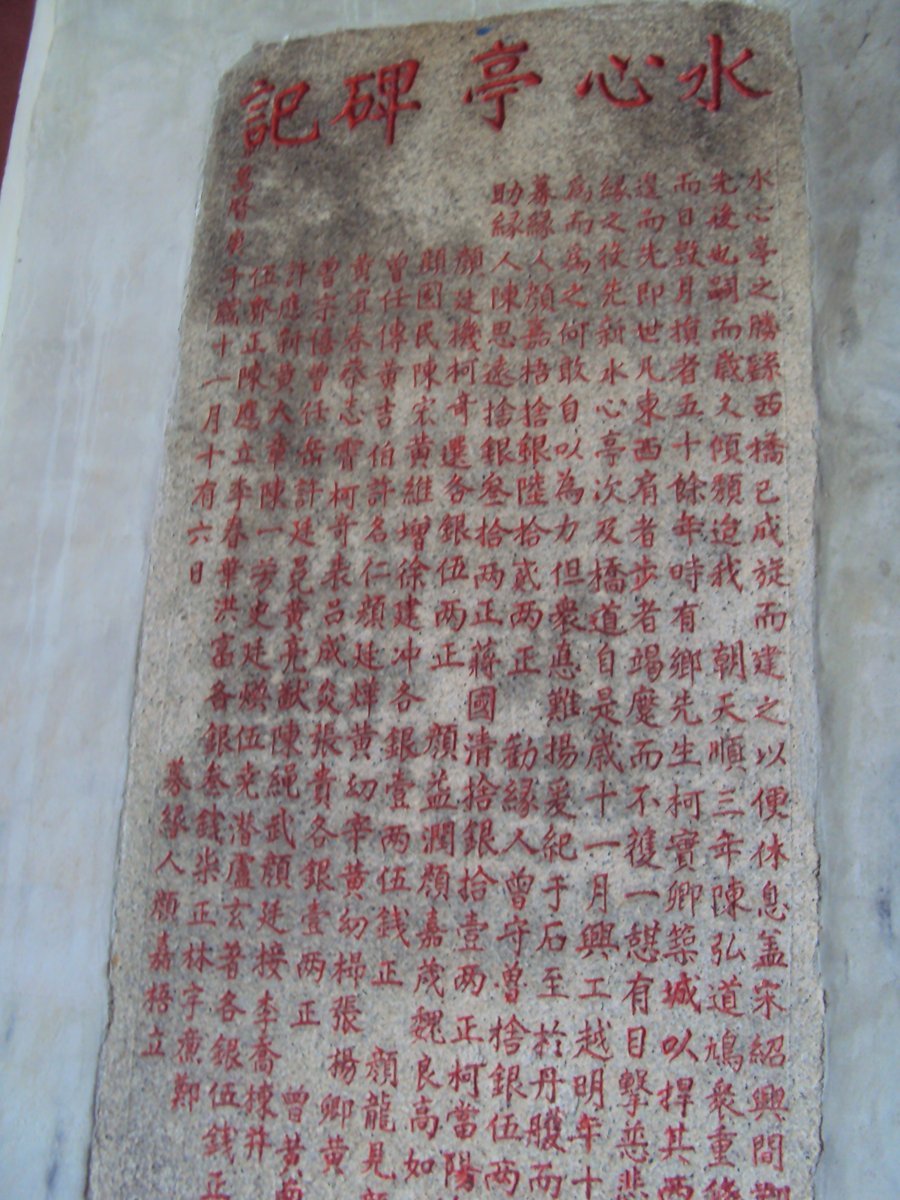 水心亭碑記
水心亭之勝縣西橋已成旋而建之以便休息盖宋紹興間
先後也嗣而歲久傾頹迨我 朝天順三年陳弘道鳩衆重修
而日毀月損者五十餘年時有鄉先生柯實卿築城以捍其西
邊而先即世凡東西肩者步者竭蹷而不獲一憇有目擊悲
緣之後先新水心亭次及橋道自是歲十一月興工越明年十
為而為之何敢自以為力但衆惠難揚爰紀于石至於丹雘而
募緣人顏嘉梧捨銀陸拾貳两正 勸緣人曾守魯捨銀伍两
助緣人陳思遠捨銀叁拾两正蔣國清捨銀拾壹两正柯當陽
顏廷機柯奇選各銀伍两正 顏益潤顏嘉茂魏良高如
顏國民陳宏黃維增徐建冲各銀壹两伍錢正 顏龍見
曾任傳黃吉伯許名仁顏廷燁黃幼宰黃幼 張揚卿黃
黃宜春蔡志霄柯奇表吕成炎張貴各銀壹两正 曾黃
曾宗僖曾任岳許廷 黃亮猷陳繩武顏廷接李喬棟
許應新黃大章陳一 史廷燠伍堯潜盧玄著各銀伍錢正
伍 正陳應立李春華洪富各銀叁錢柒正林宇 鄭
萬曆庚子歲十一月十有六日 募緣人顏嘉梧立